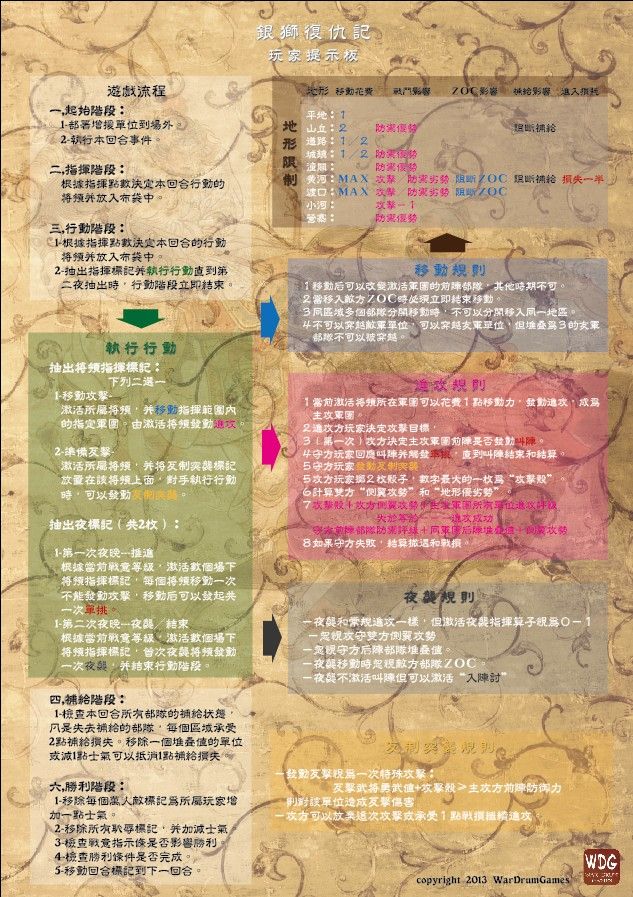 銀獅復仇記
玩家提示板
遊戲流程
一,起始階段：
1-部署增援單位到場外。
2-執行本回合事件。
二,指揮階段：
根據指揮點數決定本回合行動的
將領并放入布袋中。
三,行動階段：
1-根據指揮點數決定本回合的行動
將領并放入布袋中。
2-抽出指揮標記并執行行動直到第
二夜抽出時，行動階段立即結束。
執行行動
抽出將領指揮標記：
下列二選一
1-移動攻擊-
激活所屬將領，并移動指揮範圍內
的指定軍團。由激活將領發動進攻。
2-準備反擊-
激活所屬將領，并將反制突襲標記
放置在該將領上面，對手執行行動
時，可以發動反制突襲。
抽出夜標記（共2枚）：
1-第一次夜晚--推進
根據當前戰意等級，激活數個場下
將領指揮標記，每個將領移動一次
不能發動攻擊，移動后可以發起共
一次單挑。
1-第二次夜晚---夜襲／結束
根據當前戰意等級，激活數個場下
將領指揮標記，首次夜襲將領發動
一次夜襲，并結束行動階段。
四,補給階段：
1-檢查本回合所有部隊的補給狀態，
凡是失去補給的部隊，每個區域承受
2點補給損失。移除一個堆疊值的單位
或減1點士氣可以抵消1點補給損失。
六,勝利階段：
1-移除每個萬人敵標記爲所屬玩家增
加一點士氣。
2-移除所有恥辱標記，并加減士氣。
3-檢查戰意指示條是否影響勝利。
4-檢查勝利條件是否完成。
5-移動回合標記到下一回合。
地形限制
地形 移動花費 戰鬥影響 ZOC影響 補給影響 進入損耗
平地：1
山丘：2 防禦優勢 阻斷補給
道路：1／2
城鎮：1／2 防禦優勢
渡願： 防禦優勢
黃河：MAX 攻擊／防禦劣勢 阻斷ZOC 阻斷補給 損失一半
渡口：MAX 攻擊／防禦劣勢 阻斷ZOC
小河： 攻擊－1
營寨： 防禦優勢
移動規則
1移動后可以改變激活軍團的前陣部隊，其他時期不可。
2當移入敵方ZOC時必須立即結束移動。
3同區域多個部隊分開移動時，不可以分開移入同一地區。
4不可以穿越敵軍單位，可以穿越友軍單位，但堆疊爲3的友軍
部隊不可以被穿越。
進攻規則
1當前激活將領所在軍團可以花費1點移動力，發動進攻，成爲
主攻軍團。
2進攻方玩家決定攻擊目標，
3（第一次）攻方決定主攻軍團前陣是否發動叫陣。
4守方玩家回應叫陣并觸發單挑，直到叫陣結束和結算。
5守方玩家發動反制突襲
5攻方玩家擲2枚骰子，數字最大的一枚爲“攻擊骰”。
6計算雙方“側翼攻勢”和“地形優劣勢”。
7攻擊骰＋攻方側翼攻勢＋主攻軍團所有單位進攻評級
大於等於-----進攻成功
守方前陣部隊防禦評級＋同軍團后陣堆疊值＋側翼攻勢
8如果守方失敗，結算撤退和戰損。
夜襲規則
—夜襲和常規進攻一樣，但激活夜襲指揮算子視爲0－1
—忽視攻守雙方側翼攻勢
—忽視守方后陣部隊堆疊值。
—夜襲移動時忽視敵方部隊ZOC。
—夜襲不激活叫陣但可以激活“入陣討”
反制突襲規則
—發動反擊視爲一次特殊攻擊：
反擊武將勇武值+攻擊骰＞主攻方前陣防禦力
則對該單位造成反擊傷害
—攻方可以放棄這次攻擊或承受1點戰損繼續進攻。
WDG
WAR DRUM
GAMES
copyright 2013 WarDrumGames